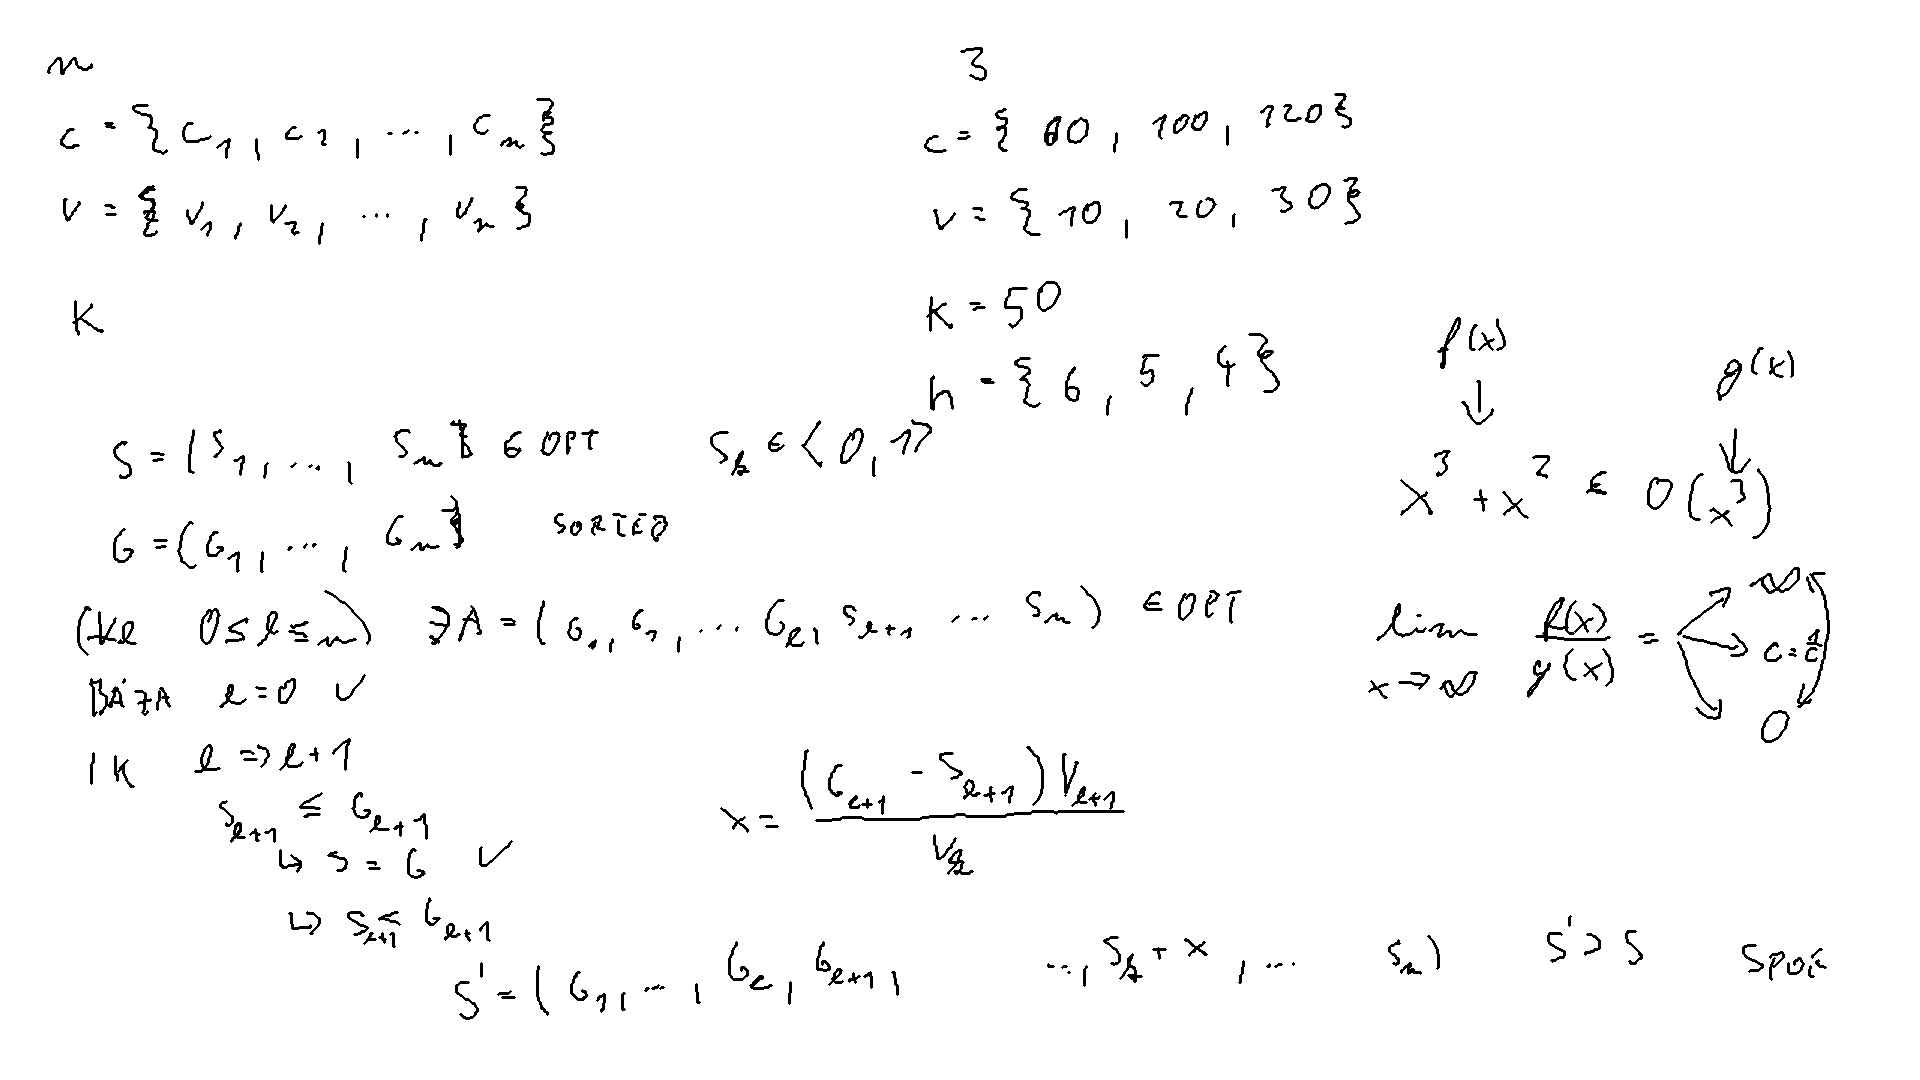 n
c = {c₁, c₂, ..., cₙ}
v = {v₁, v₂, ..., vₙ}
K
3
c = {60, 100, 120}
v = {10, 20, 30}
K = 50
h = {6, 5, 4}
S = (s₁, ..., sₙ) ∈ OPT   S_k ∈ ⟨0, 1⟩
G = (G₁, ..., Gₙ) SORTED
(∀l 0 ≤ l ≤ n) ∃A = (G₁, G₂, ... G_l, S_{l+1} ... Sₙ) ∈ OPT
BÁZA l = 0 ✓
IK l => l+1
S_{l+1} ≤ G_{l+1}
↳ S = G ✓
↳ S_{l+1} < G_{l+1}
S' = (G₁, ..., G_l, G_{l+1}, ..., S_k + x, ... Sₙ)   S' > S   SPOR
x = (G_{l+1} - S_{l+1}) V_{l+1} / V_k
f(x) ↓   g(x) ↓
x³ + x² ∈ O(x³)
lim x→∞ f(x)/g(x) = ∞
c = 1/c
0